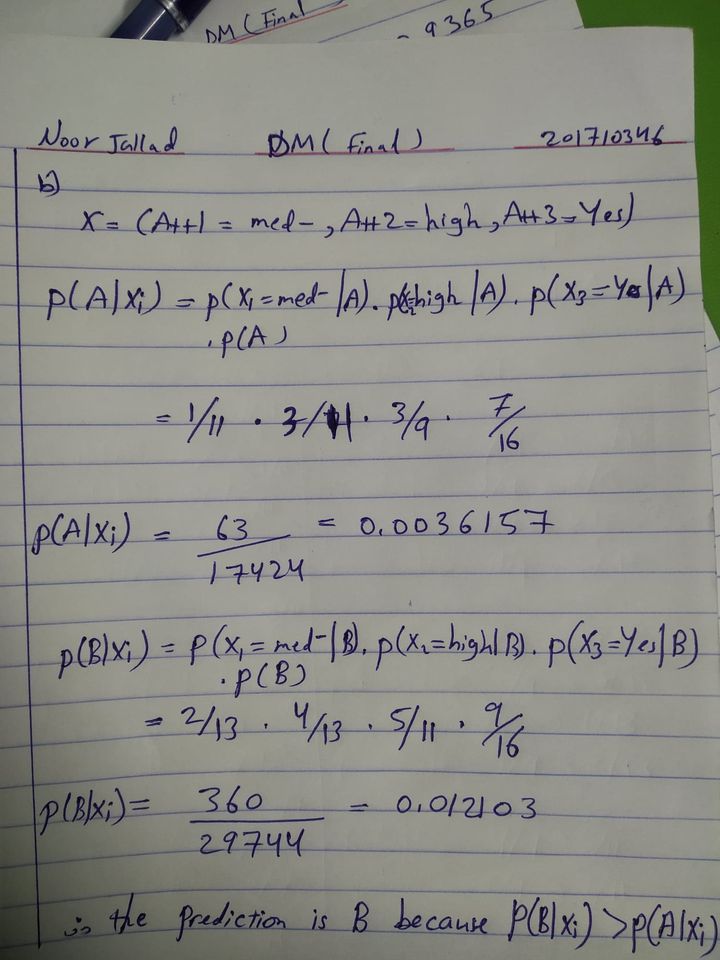 DM (Final
9365
Noor Jallad DM ( Final ) 201710346
b)
X = (Att1 = med- , Att2 = high , Att3 = Yes)
p(A|xi) = p(x1 = med- |A) . p(x2=high |A) . p(x3 = Yes|A)
. p(A)
= 1/11 . 3/11 . 3/9 . 7/16
p(A|xi) = 63/17424 = 0.0036157
p(B|xi) = p(x1 = med-|B). p(x2=high|B). p(x3=Yes|B)
. p(B)
= 2/13 . 4/13 . 5/11 . 9/16
p(B|xi) = 360/29744 = 0.012103
∴ the prediction is B because p(B|xi) > p(A|xi)